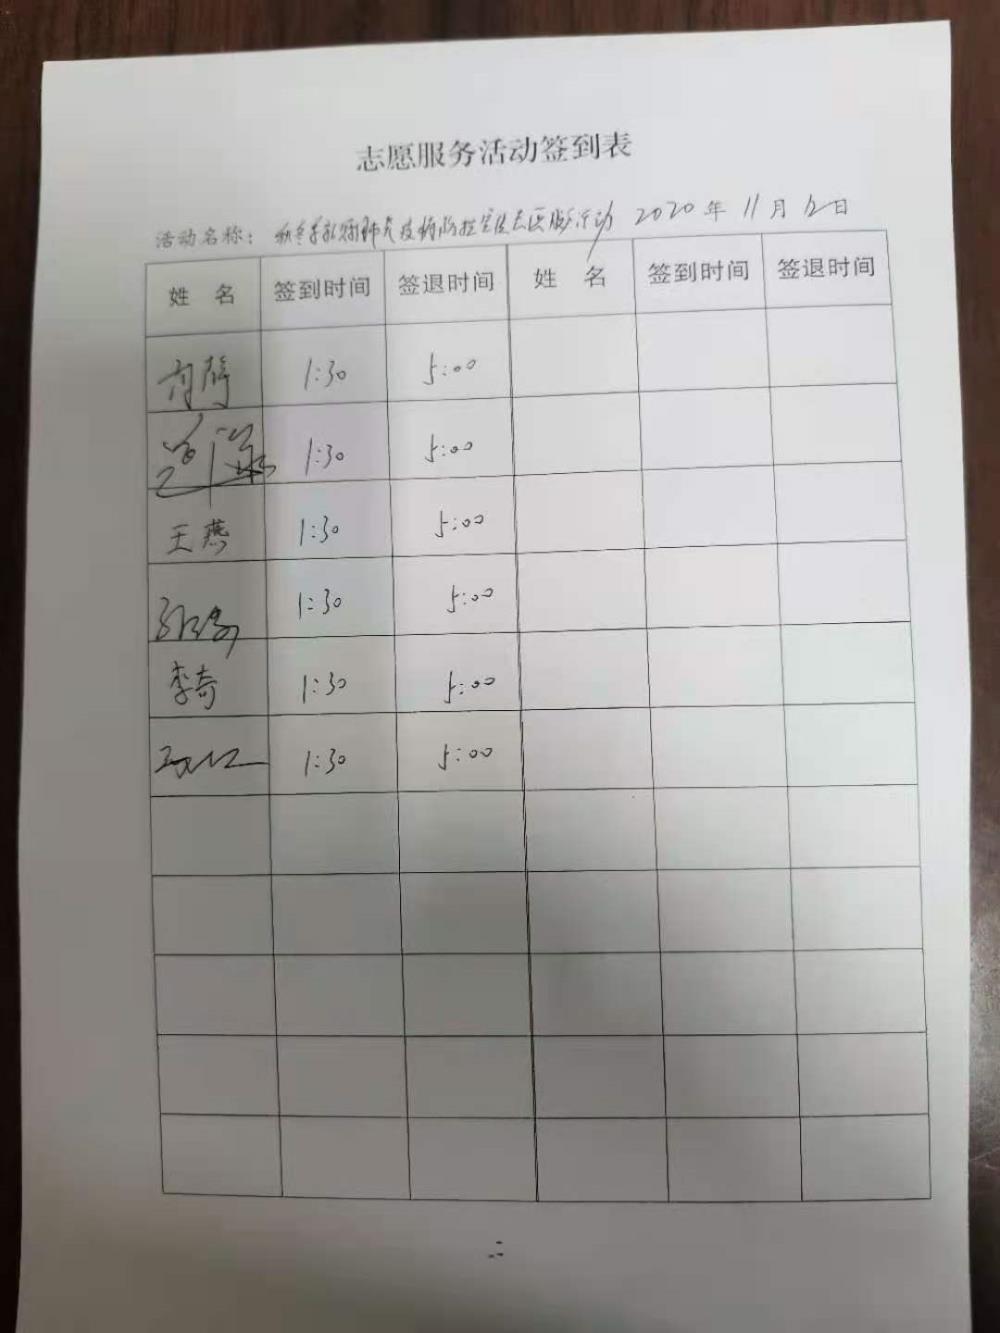 志愿服务活动签到表
活动名称： 秋冬季新冠肺炎疫病防控宣传志愿服务活动 2020年11月12日
姓 名 签到时间 签退时间 姓 名 签到时间 签退时间
1:30 5:00
1:30 5:00
王燕 1:30 5:00
1:30 5:00
李奇 1:30 5:00
1:30 5:00